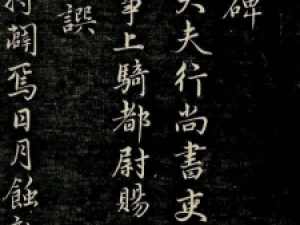 碑
大夫行尚書吏
事上騎都尉賜
譔
將闕焉日月蝕